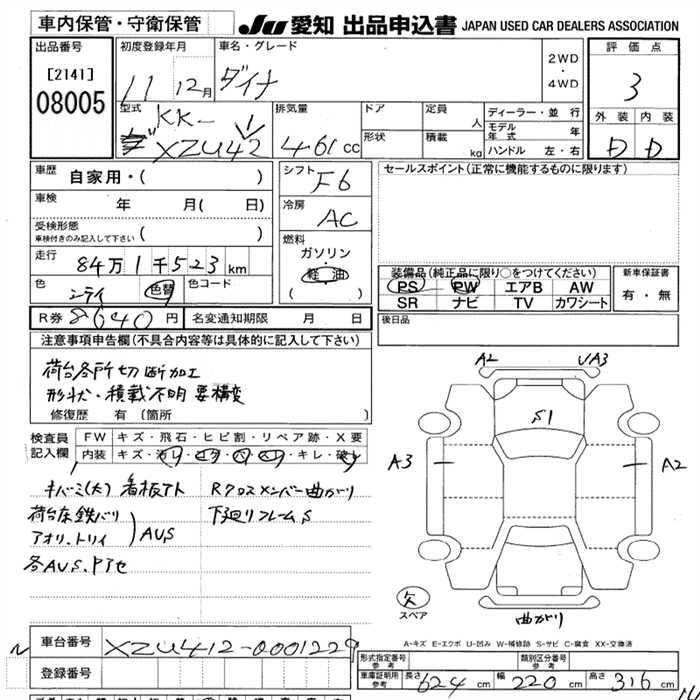 車内保管・守衛保管
JU 愛知 出品申込書 JAPAN USED CAR DEALERS ASSOCIATION
出品番号
[2141]
08005
初度登録年月
11 12月
車名・グレード
ダイナ
2WD
・
4WD
評価点
3
外装 内装
D D
型式
KK-
XZU42
排気量
4.61 cc
ドア
形状
定員 人
積載 kg
ディーラー・並行
モデル年式 年
ハンドル 左・右
車歴
自家用・( )
車検
年 月( 日)
受検形態
車検付きのみ記入して下さい ( )
走行
84万1千523km
色 色替 色コード
R券 8640円 名変通知期限 月 日
シフト
F6
冷房
AC
燃料
ガソリン
・
軽油
( )
セールスポイント(正常に機能するものに限ります)
装備品(純正品に限り○をつけてください)
PS PW エアB AW
SR ナビ TV カワシート
新車保証書
有・無
後日品
注意事項申告欄(不具合内容等は具体的に記入して下さい)
荷台各所切断加工
形状・積載不明 要構変
修復歴 有〔箇所 〕
検査員記入欄
FW キズ・飛石・ヒビ割・リペア跡・X要
内装 キズ・キレ・
キバミ(大) 看板アト
荷台床鉄バリ
アオリ、トリイ
AU,S
各AU,S,Pアセ
Rクロスメンバー曲がり
下廻りフレームS
A2 UA3
S1
A3 A2
欠
スペア
曲がり
A-キズ E-エクボ U-凹み W-補修跡 S-サビ C-腐食 XX-交換済
車台番号 XZU412-0001229
登録番号
形式指定番号 参考
類別区分番号 参考
車庫証明用 参考 長さ 624 cm 幅 220 cm 高さ 316 cm